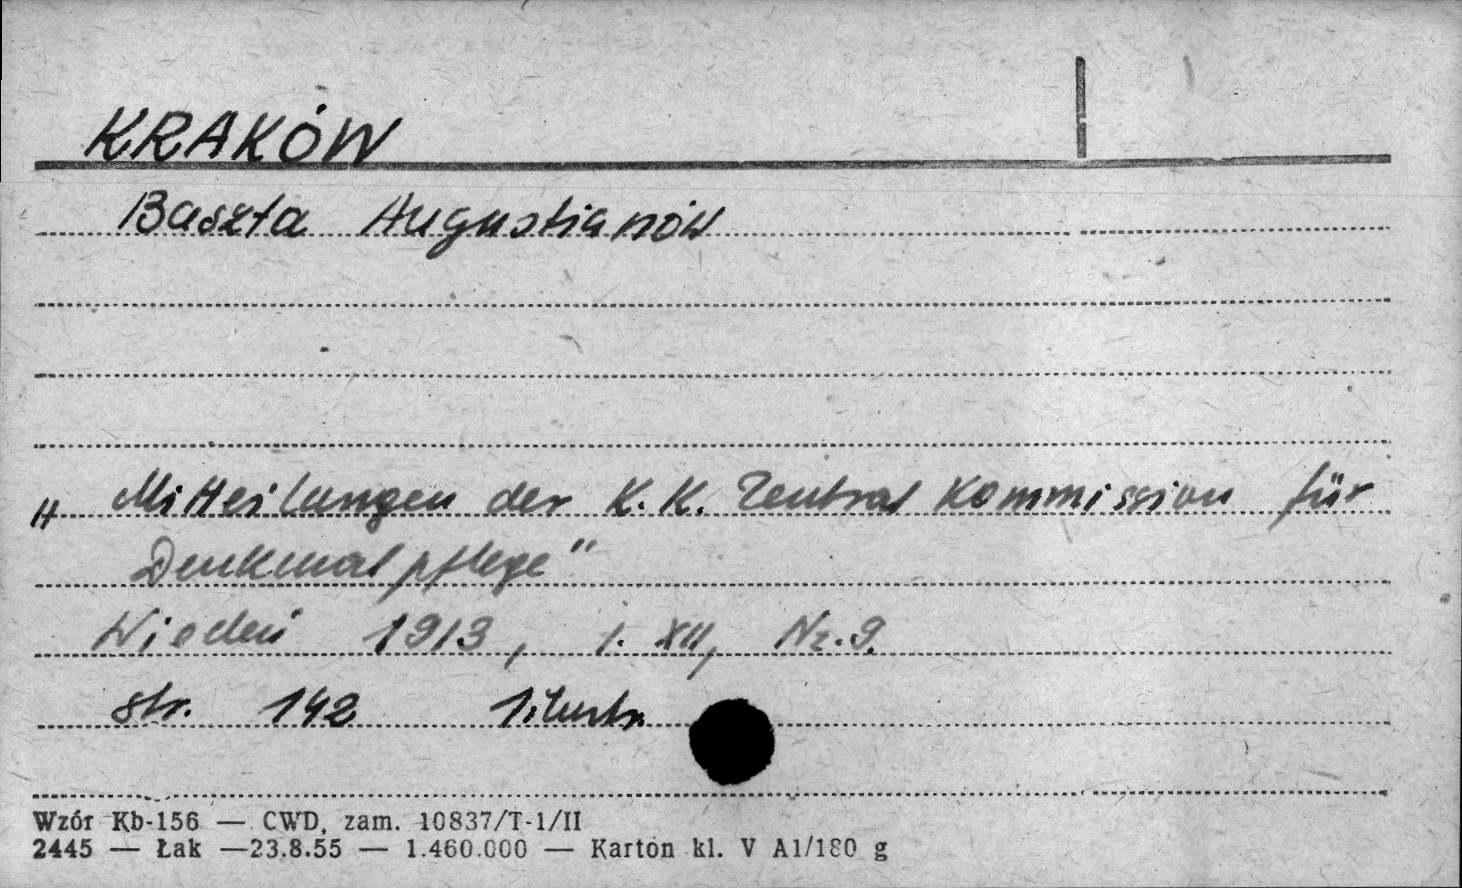 KRAKÓW
Baszta Augustianów
"Mitteilungen der K.K. Zentral Kommission für
Denkmalpflege"
Wiedeń 1913, t. XII, Nr. 9.
str. 142 1 ilustr.
Wzór Kb-156 — CWD, zam. 10837/T-1/II
2445 — Łak —23.8.55 — 1.460.000 — Karton kl. V A1/180 g